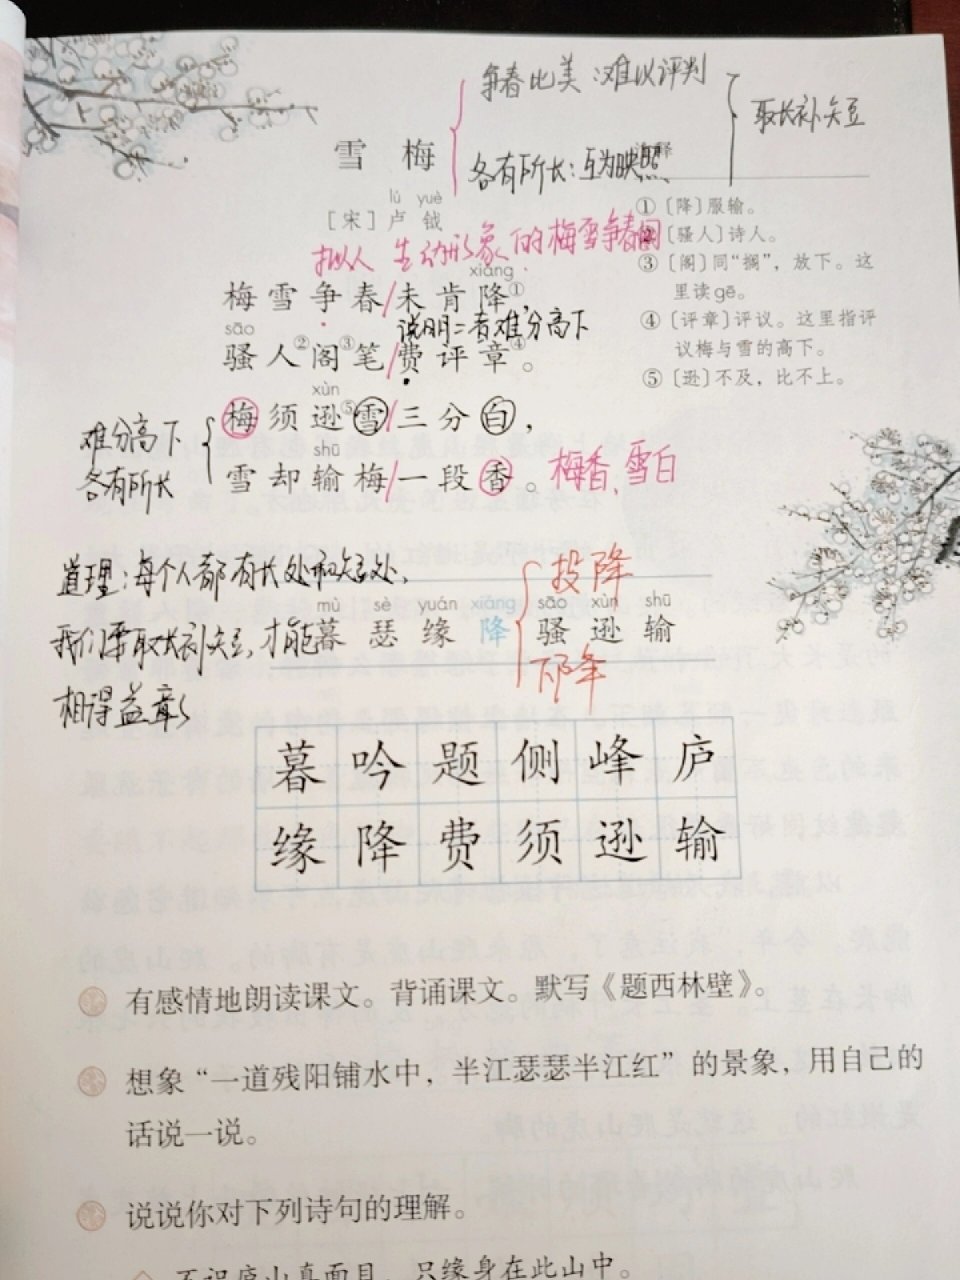 争春比美：难以评判
取长补短
各有所长：互为映照
雪 梅
lú yuè
[宋] 卢 钺
拟人 生动形象的梅雪争春图
xiáng
梅雪争春/未肯降①，
说明二者难分高下
sāo
骚人②阁③笔/费评章④。
xùn
梅须逊⑤雪/三分白，
shū
雪却输梅/一段香。
梅香、雪白
难分高下
各有所长
①〔降〕服输。
②〔骚人〕诗人。
③〔阁〕同“搁”，放下。这
里读gē。
④〔评章〕评议。这里指评
议梅与雪的高下。
⑤〔逊〕不及，比不上。
道理：每个人都有长处和短处，
我们要取长补短，才能
相得益彰
投降
mù sè yuán xiáng sāo xùn shū
暮 瑟 缘 降 骚 逊 输
下降
暮 吟 题 侧 峰 庐
缘 降 费 须 逊 输
有感情地朗读课文。背诵课文。默写《题西林壁》。
想象“一道残阳铺水中，半江瑟瑟半江红”的景象，用自己的
话说一说。
说说你对下列诗句的理解。
◇ 不识庐山真面目，只缘身在此山中。